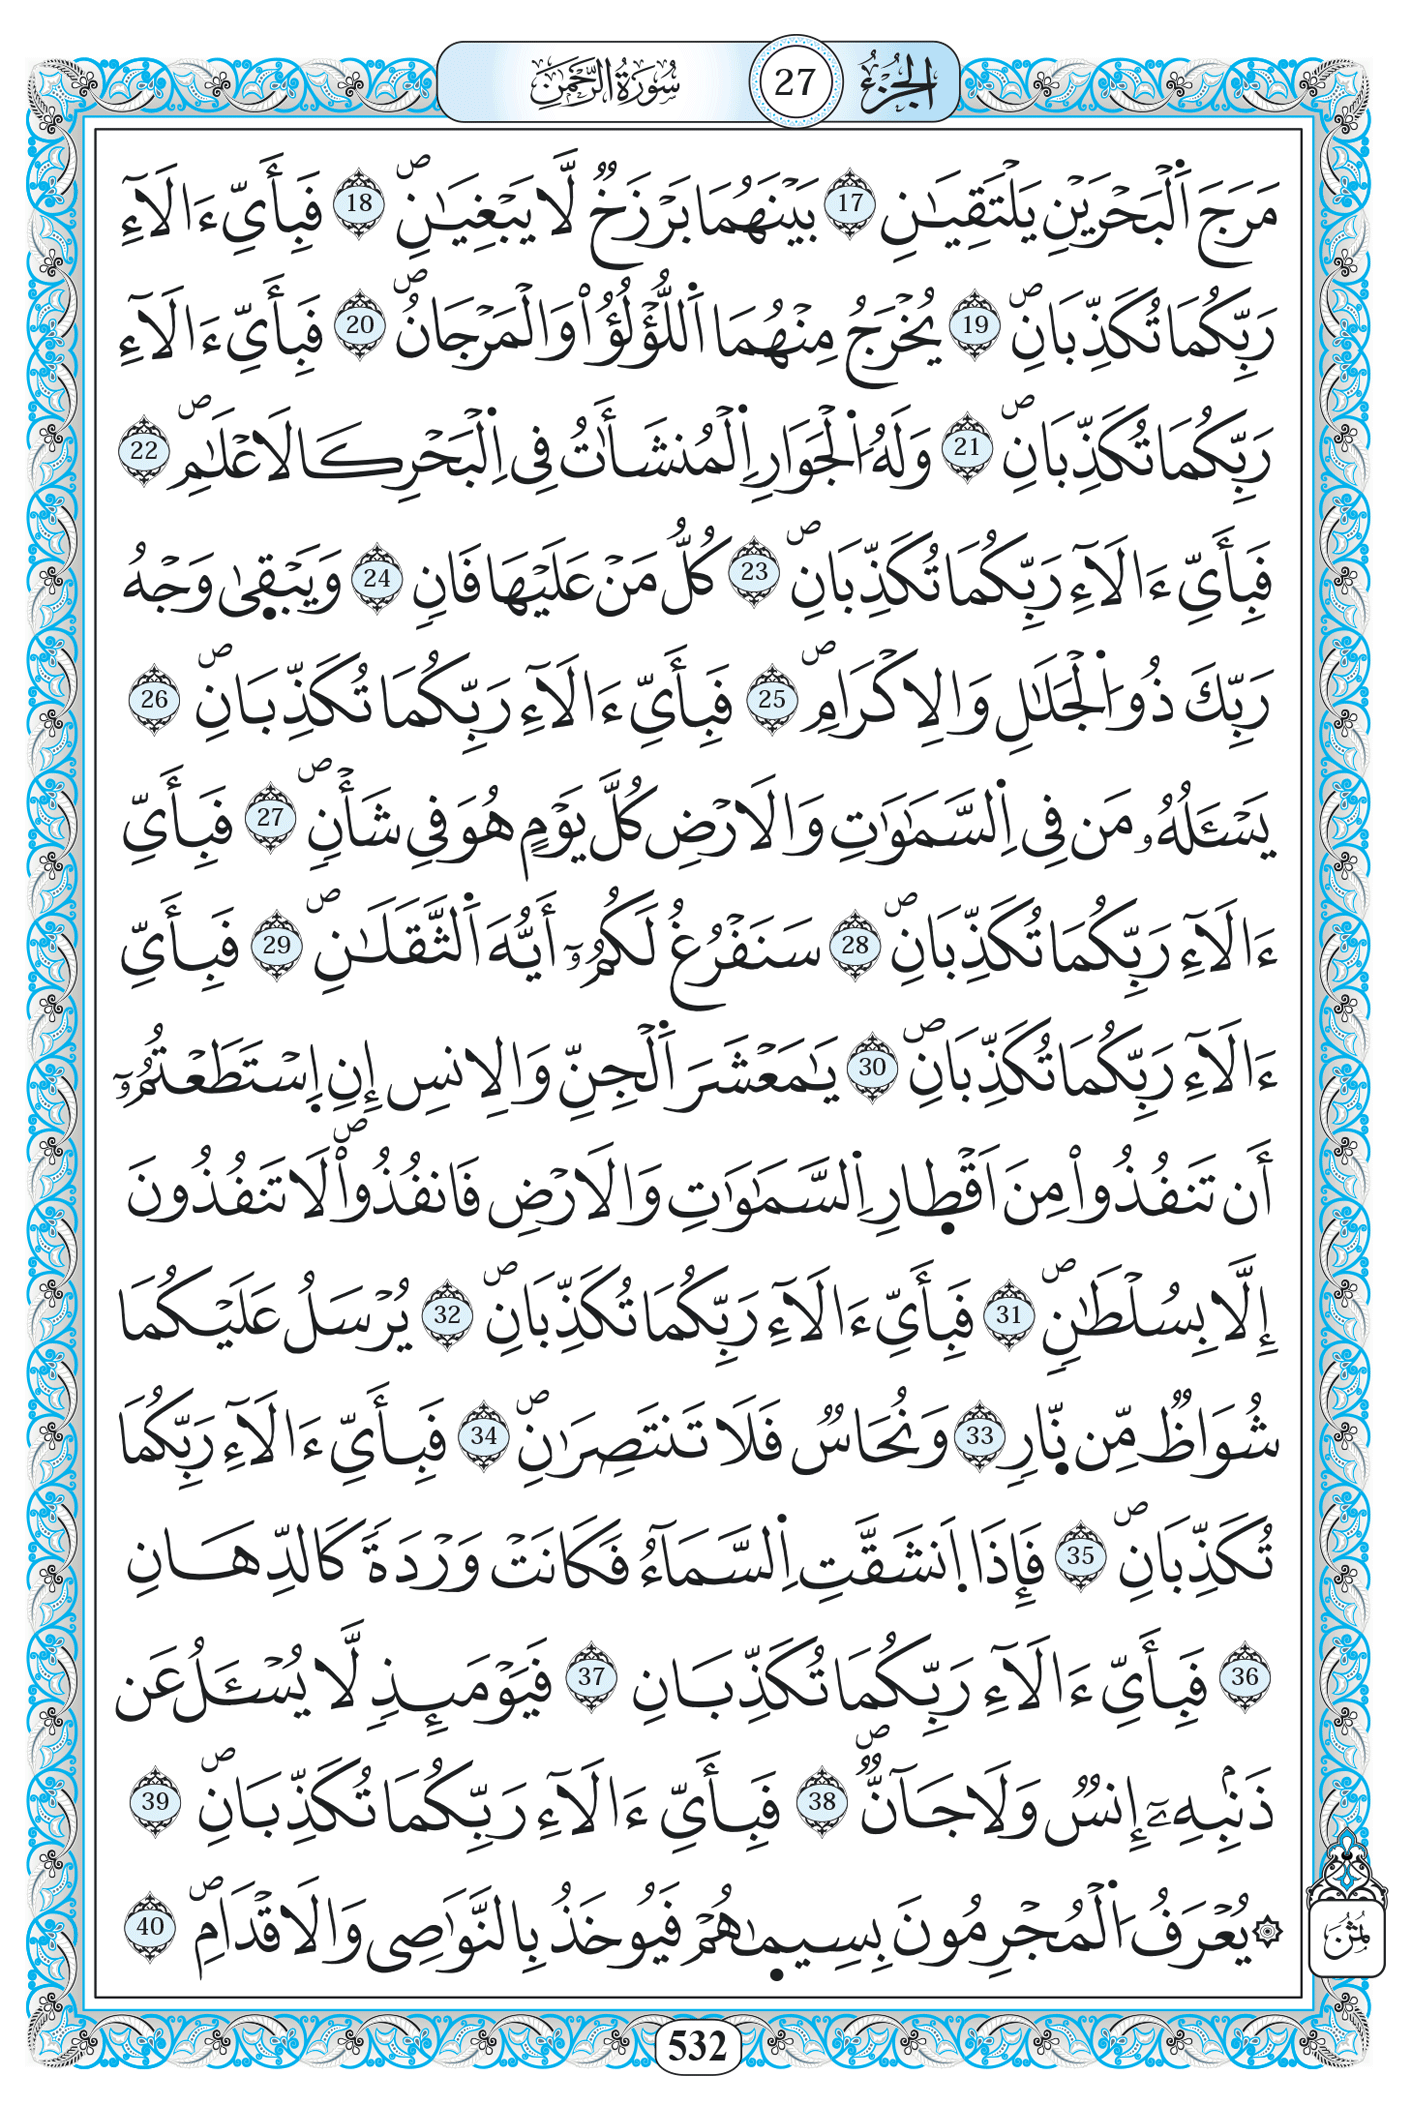 الجزء 27 سورة الرحمن
مَرَجَ اَ۬لْبَحْرَيْنِ يَلْتَقِيَٰنِ 17 بَيْنَهُمَا بَرْزَخٞ لَّا يَبْغِيَٰنِۖ 18 فَبِأَيِّ ءَالَآءِ
رَبِّكُمَا تُكَذِّبَانِۖ 19 يُخْرَجُ مِنْهُمَا اَ۬للُّؤْلُؤُاْ وَالْمَرْجَانُۖ 20 فَبِأَيِّ ءَالَآءِ
رَبِّكُمَا تُكَذِّبَانِۖ 21 وَلَهُ اُ۬لْجَوَارِ اِ۬لْمُنشَـَٔاتُ فِي اِ۬لْبَحْرِ كَالَاعْلَٰمِۖ 22
فَبِأَيِّ ءَالَآءِ رَبِّكُمَا تُكَذِّبَانِۖ 23 كُلُّ مَنْ عَلَيْهَا فَانٖ 24 وَيَبْق۪ىٰ وَجْهُ
رَبِّكَ ذُو اُ۬لْجَلَٰلِ وَالِاكْرَامِۖ 25 فَبِأَيِّ ءَالَآءِ رَبِّكُمَا تُكَذِّبَانِۖ 26
يَسْـَٔلُهُۥ مَن فِي اِ۬لسَّمَٰوَٰتِ وَالَارْضِ كُلَّ يَوْمٍ هُوَ فِي شَأْنٖۖ 27 فَبِأَيِّ
ءَالَآءِ رَبِّكُمَا تُكَذِّبَانِۖ 28 سَنَفْرُغُ لَكُمُۥٓ أَيُّهَ اَ۬لثَّقَلَٰنِۖ 29 فَبِأَيِّ
ءَالَآءِ رَبِّكُمَا تُكَذِّبَانِۖ 30 يَٰمَعْشَرَ اَ۬لْجِنِّ وَالِانسِ إِنِ اِ۪سْتَطَعْتُمُۥٓ
أَن تَنفُذُواْ مِنَ اَقْط۪ارِ اِ۬لسَّمَٰوَٰتِ وَالَارْضِ فَانفُذُواْۖ لَا تَنفُذُونَ
إِلَّا بِسُلْطَٰنٖۖ 31 فَبِأَيِّ ءَالَآءِ رَبِّكُمَا تُكَذِّبَانِۖ 32 يُرْسَلُ عَلَيْكُمَا
شُوَاظٞ مِّن نّ۪ارٖ 33 وَنُحَاسٞ فَلَا تَنتَصِرَٰنِۖ 34 فَبِأَيِّ ءَالَآءِ رَبِّكُمَا
تُكَذِّبَانِۖ 35 فَإِذَا اَ۪نشَقَّتِ اِ۬لسَّمَآءُ فَكَانَتْ وَرْدَةٗ كَالدِّهَانِ
36 فَبِأَيِّ ءَالَآءِ رَبِّكُمَا تُكَذِّبَانِ 37 فَيَوْمَئِذٖ لَّا يُسْـَٔلُ عَن
ذَنۢبِهِۦٓ إِنسٞ وَلَا جَآنّٞۖ 38 فَبِأَيِّ ءَالَآءِ رَبِّكُمَا تُكَذِّبَانِۖ 39
۞يُعْرَفُ اُ۬لْمُجْرِمُونَ بِسِيمٰ۪هُمْ فَيُوخَذُ بِالنَّوَٰصِي وَالَاقْدَامِۖ 40
ثُمُن
532